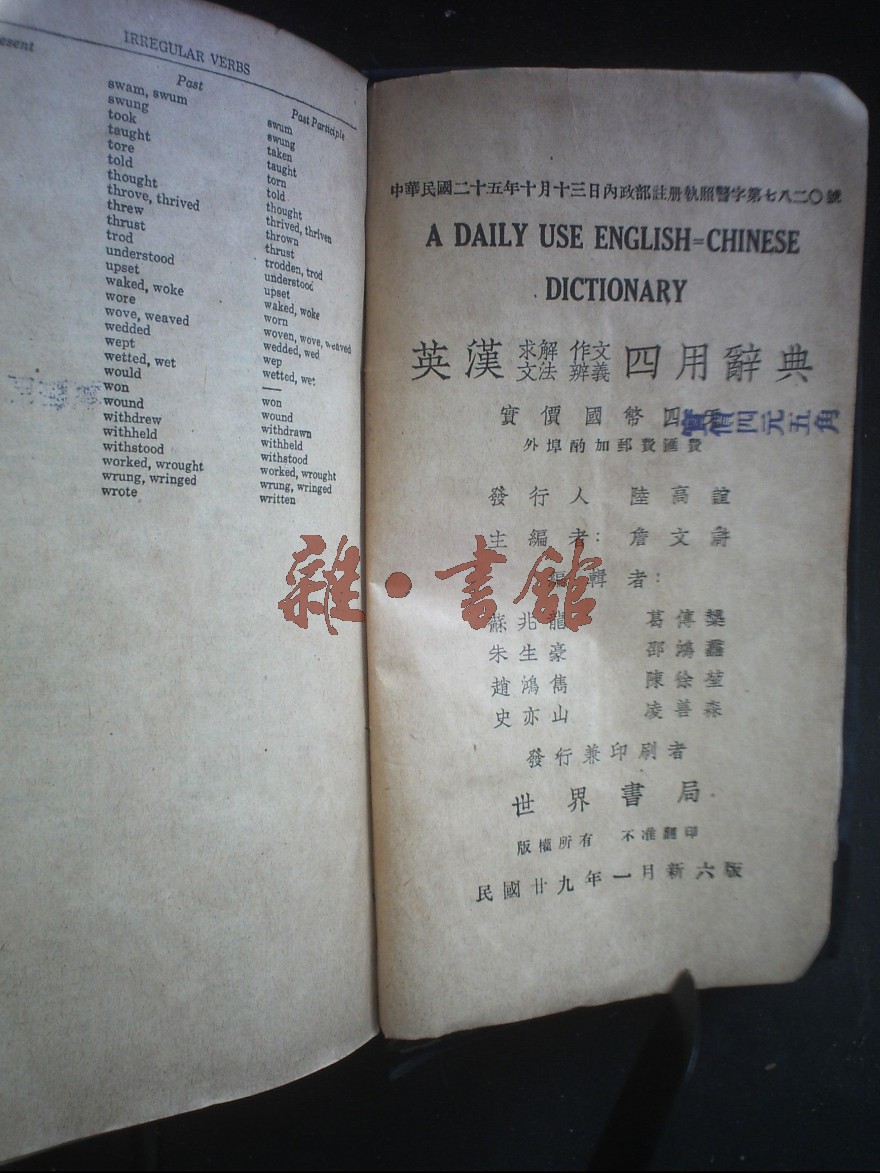 IRREGULAR VERBS
Past
Past Participle
swam, swum swum
swung swung
took taken
taught taught
tore torn
told told
thought thought
throve, thrived thrived, thriven
threw thrown
thrust thrust
trod trodden, trod
understood understood
upset upset
waked, woke waked, woke
wore worn
wove, weaved woven, wove, weaved
wedded wedded, wed
wept wep
wetted, wet wetted, wet
would —
won won
wound wound
withdrew withdrawn
withheld withheld
withstood withstood
worked, wrought worked, wrought
wrung, wringed wrung, wringed
wrote written
中華民國二十五年十月十三日內政部註册執照警字第七八二〇號
A DAILY USE ENGLISH=CHINESE
DICTIONARY
英漢 求解 作文 文法 辨義 四用辭典
實價國幣四
實價四元五角
外埠酌加郵費匯費
發行人 陸高誼
主編者: 詹文滸
編輯者:
蘇兆龍 葛傳槼
朱生豪 邵鴻馫
趙鴻雋 陳徐堃
史亦山 凌善森
發行兼印刷者
世界書局
版權所有 不准翻印
民國廿九年一月新六版
雜·書館